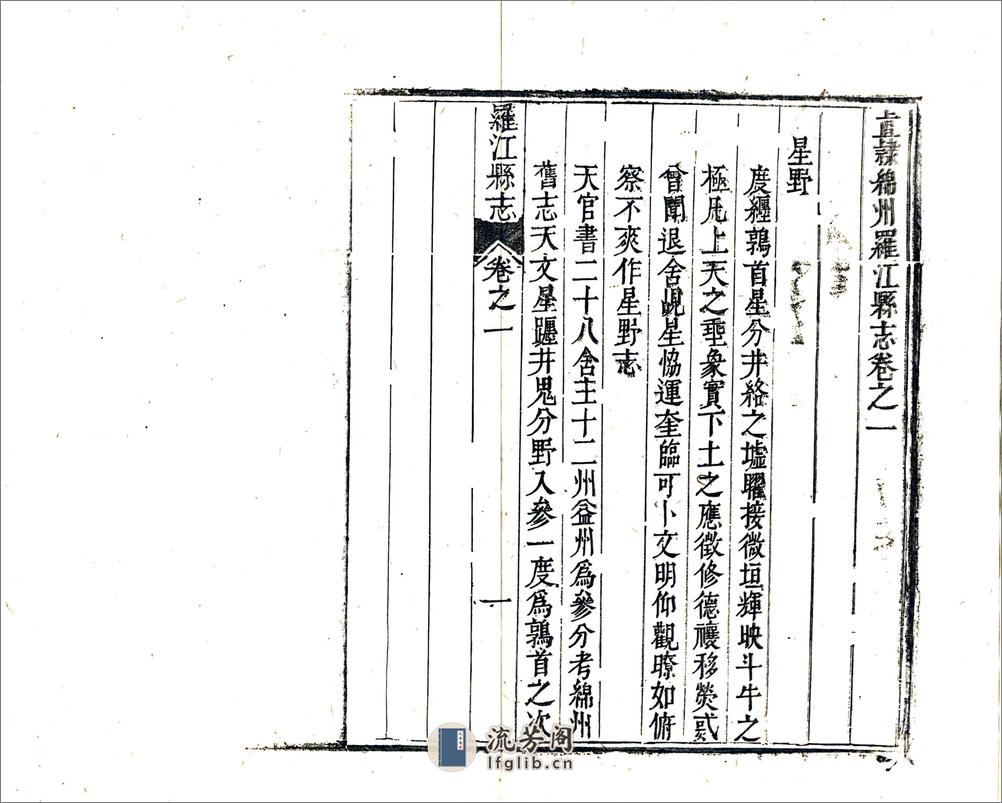 直隸綿州羅江縣志卷之一
星野
度纏鶉首星分井絡之墟曜接微垣輝映斗牛之
極凡上天之埀象實下土之應徵修德禳移熒惑
曾聞退舍覘星恊運奎臨可卜文明仰觀瞭如俯
察不爽作星野志
天官書二十八舍主十二州益州爲參分考綿州
舊志天文星躔井鬼分野入參一度爲鶉首之次
羅江縣志 卷之一 一
流芳阁
lfglib.cn